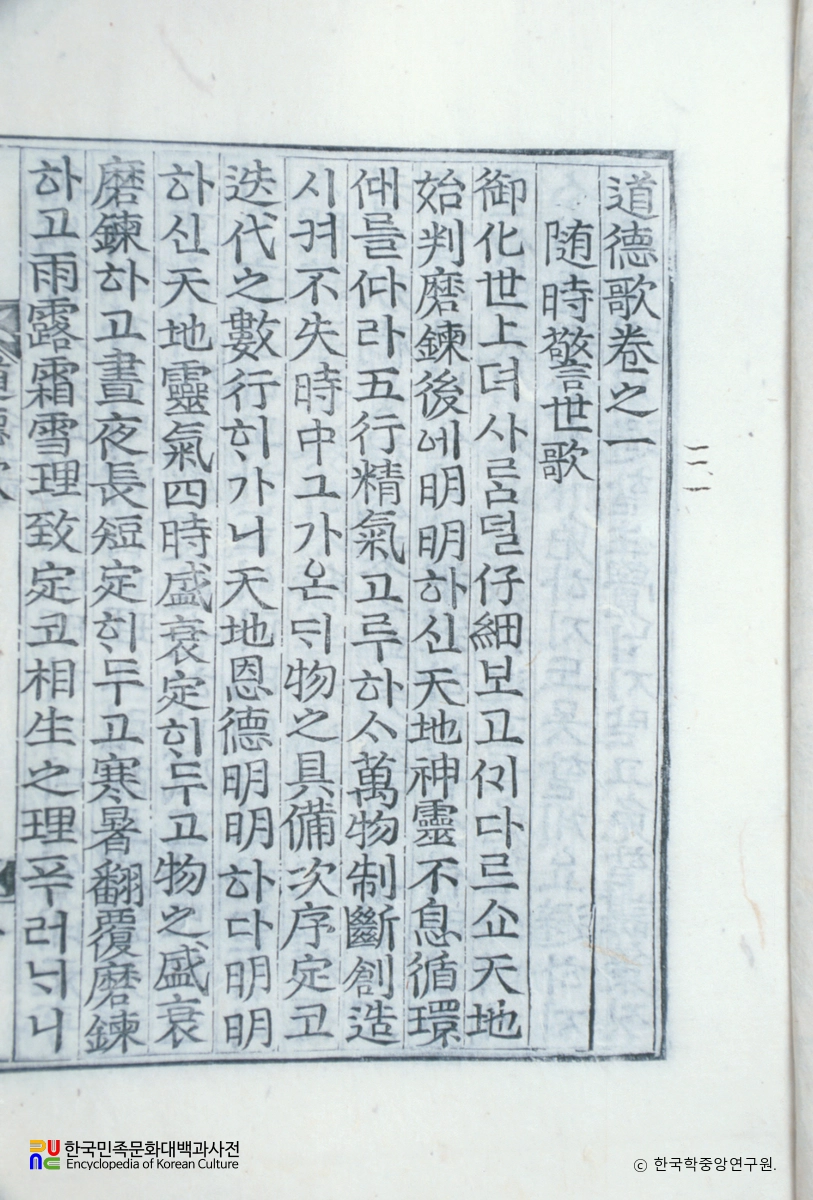 道德歌卷之一
随時警世歌
御化世上뎌사ᄅᆞᆷ덜仔細보고ᄭᅵ다르쇼天地
始判磨鍊後에明明하신天地神靈不息循環
ᄯᅢ를ᄯᅡ라五行精氣고루하ᄉᆞ萬物制斷創造
시켜不失時中그가온ᄃᆡ物之具備次序定코
迭代之數行ᄒᆡ가니天地恩德明明하다明明
하신天地靈氣四時盛衰定ᄒᆡ두고物之盛衰
磨鍊하고晝夜長短定ᄒᆡ두고寒暑翻覆磨鍊
하고雨露霜雪理致定코相生之理푸러ᄂᆡ니
한국민족문화대백과사전
Encyclopedia of Korean Culture
© 한국학중앙연구원.